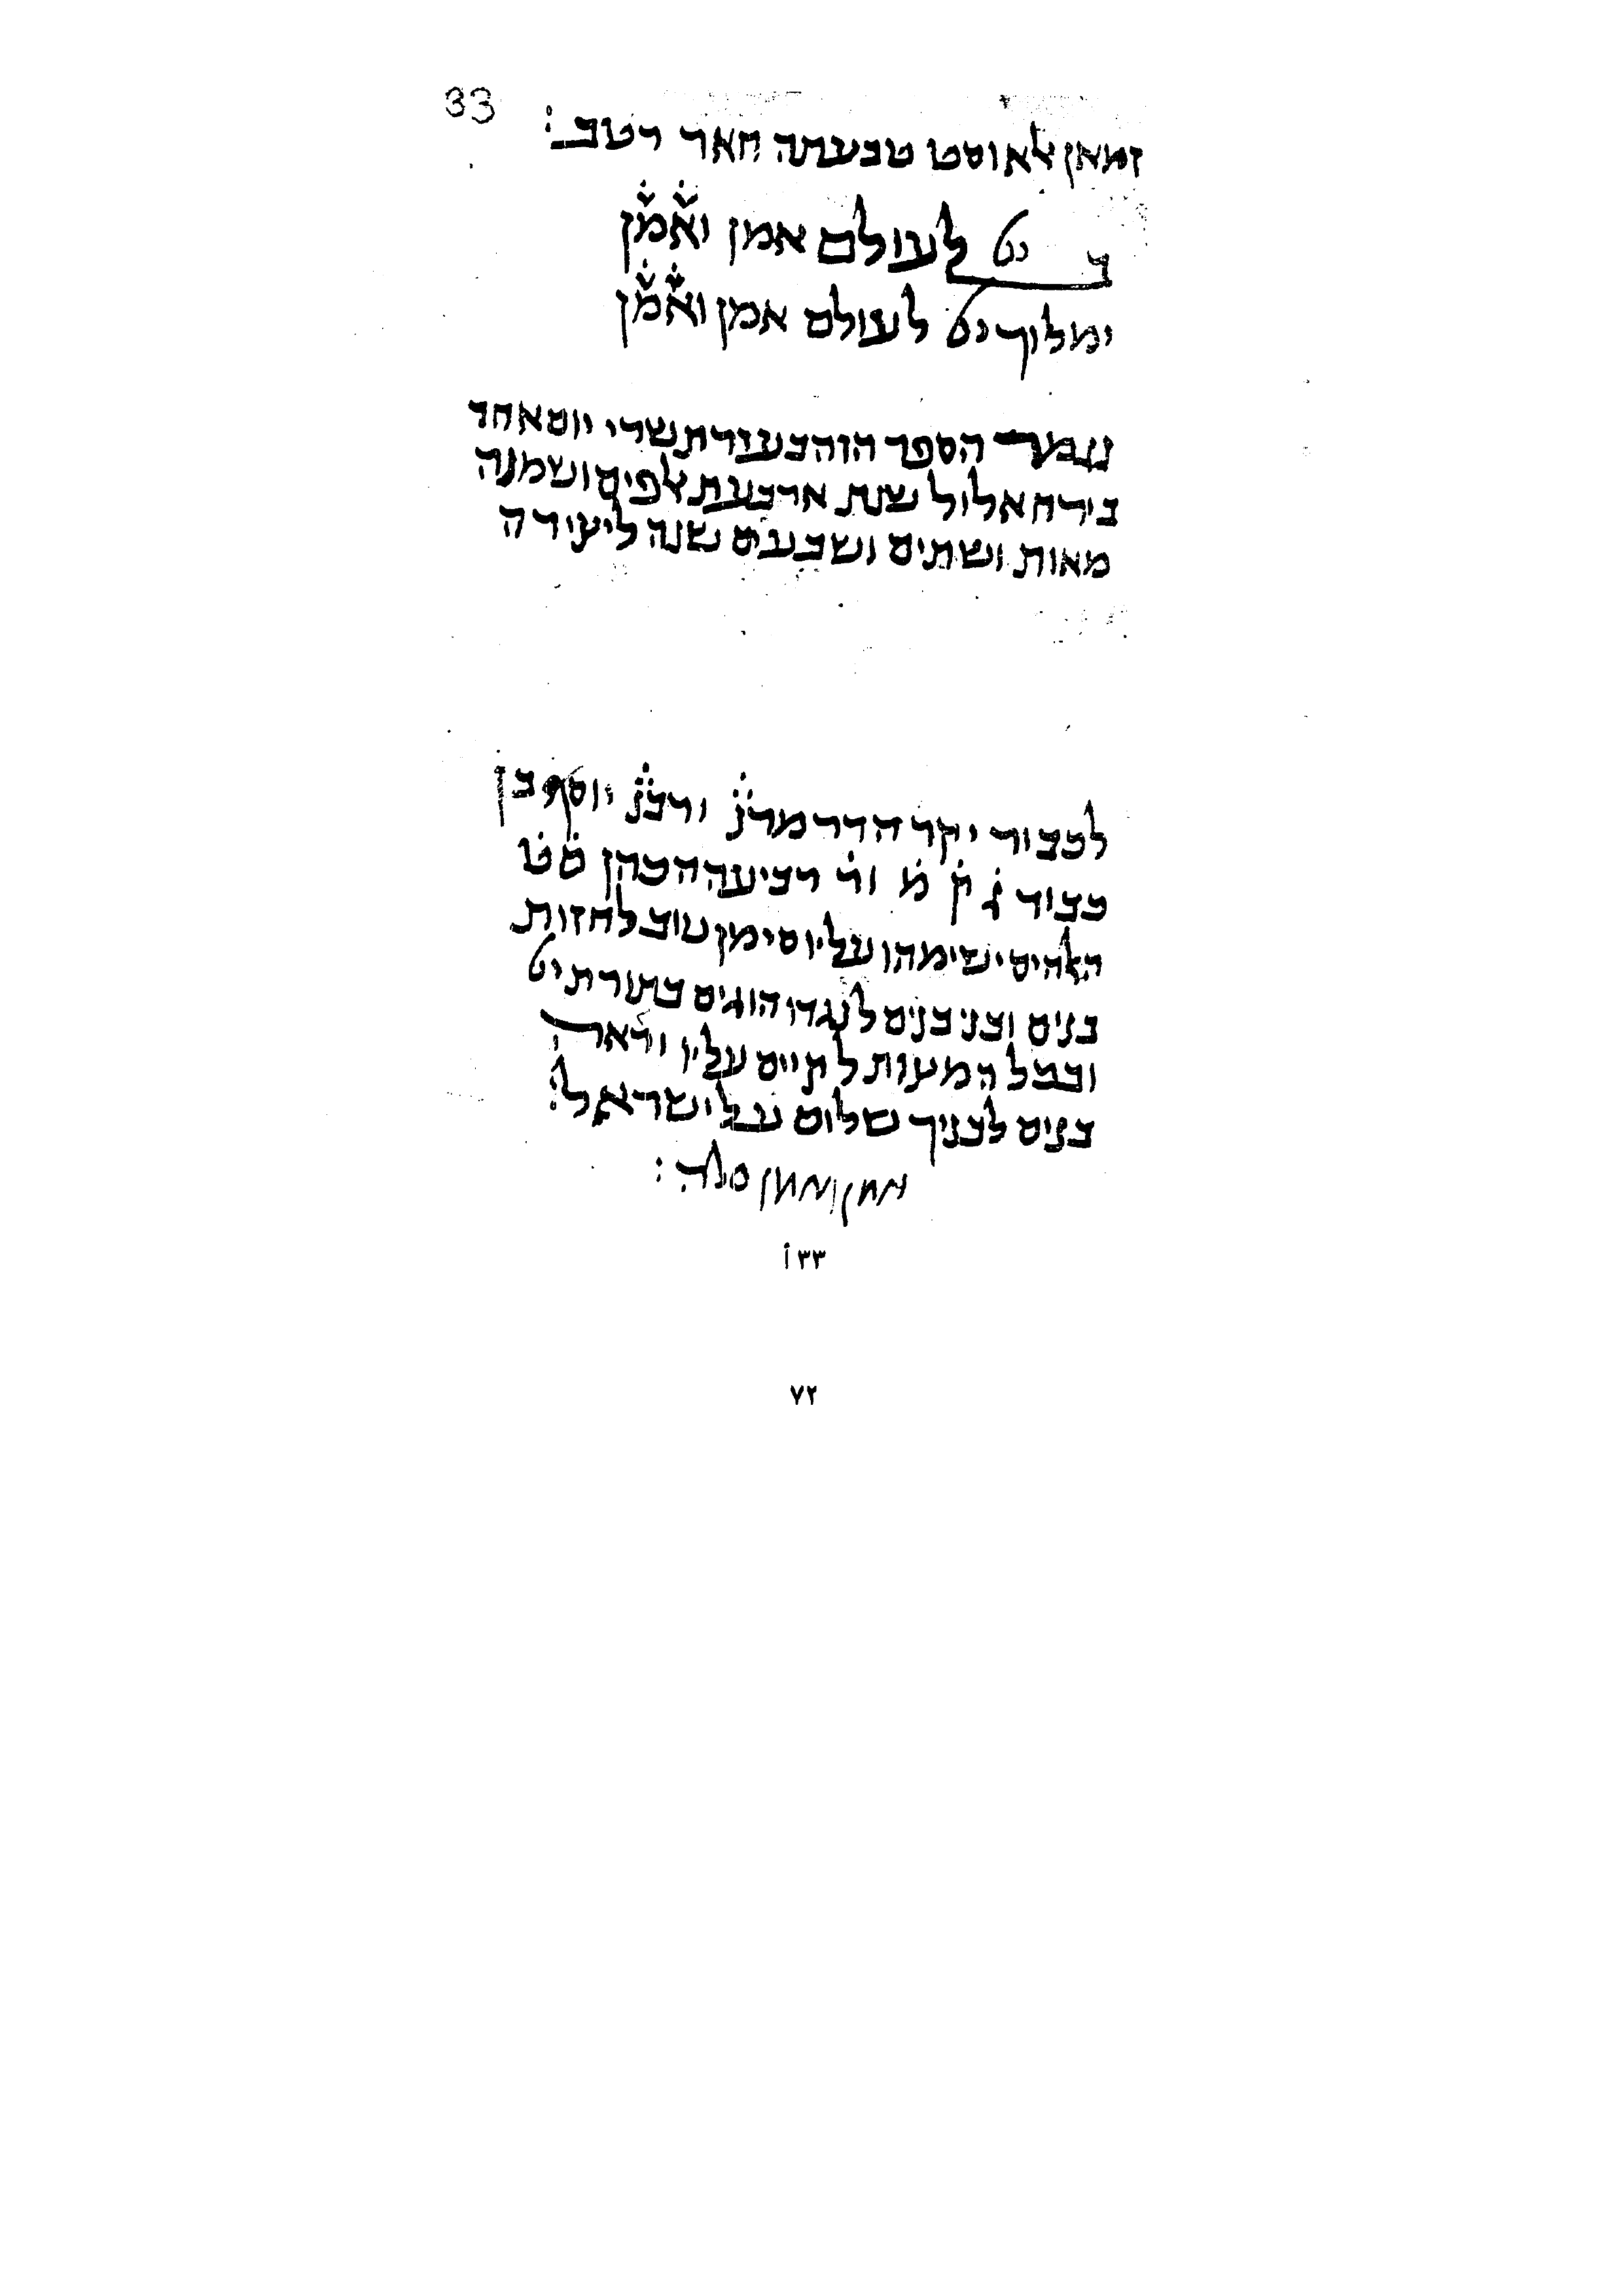 33
זמאן ﭏאוסט טבעתה חאר רטב:
ב יי לעולם אמן ואמן
ימלוך יי לעולם אמן ואמן
נגמר הספר הזה בעזרת שדי יום אחד
בירח אלול שנת ארבעת ﭏפים ושמנה
מאות ושתים ושבעים שנה ליצירה
לכבוד יקר הדר מרנ ורבנ יוסף בן
כבוד ג ק מ ור רביעה הכהן ס ט
הﭏהים ישימהו עליו סימן טוב לחזות
בנים ובני בנים לנגדו הוגים בתורת יי
ובכל המצות לקיים עליו וראה
בנים לבניך שלום על ישראל:
אמן ואמן סלה:
٣٣ أ
٧٢